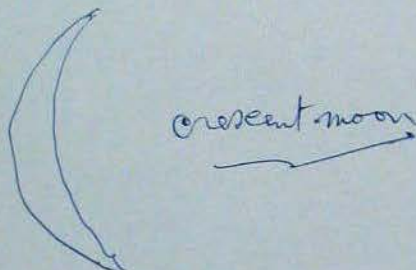 crescent moon